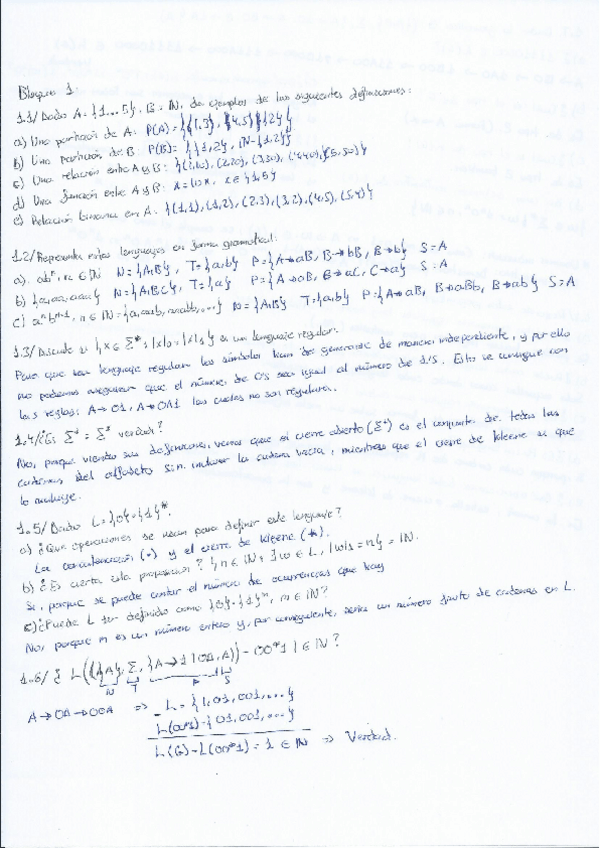 Bloque 1
1.1/ Dado A = {1...5}, B = IN, de ejemplos de las siguientes definiciones:
a) Una partición de A: P(A) = {{1,3}, {4,5}, {2}}
b) Una partición de B: P(B) = {{1,2}, IN-{1,2}}
c) Una relación entre A y B: {(1,10), (2,20), (3,30), (4,40), (5,50)}
d) Una función entre A y B: x = 10x, x ∈ {1,5}
e) Relación binaria en A: {(1,1), (1,2), (2,3), (3,2), (4,5), (5,4)}
1.2/ Representa estos lenguajes en forma gramatical:
a) abⁿ, n ∈ IN N = {A,B}, T = {a,b} P = {A→aB, B→bB, B→b} S = A
b) {a,aa,aaa} N = {A,B,C}, T = {a} P = {A→aB, B→aC, C→a} S = A
c) aⁿbⁿ⁺¹, n ∈ IN = {a,aab,aaabb,...} N = {A,B} T = {a,b} P = {A→aB, B→aBb, B→ab} S = A
1.3/ Discute si {x ∈ Σ* : |x|₀ = |x|₁} es un lenguaje regular.
Para que sea lenguaje regular los símbolos han de generarse de manera independiente, y por ello
no podemos asegurar que el número de 0's sea igual al número de 1's. Esto se consigue con
las reglas: A→01, A→0A1 las cuales no son regulares.
1.4/ ¿Es Σ⁺ = Σ* verdad?
No, porque viendo sus definiciones, vemos que el cierre abierto (Σ⁺) es el conjunto de todas las
cadenas del alfabeto sin incluir la cadena vacía, mientras que el cierre de Kleene si que
lo incluye.
1.5/ Dado L = {0}·{1}*.
a) ¿Qué operaciones se usan para definir este lenguaje?
La concatenación (·) y el cierre de Kleene (*).
b) ¿Es cierta esta proposición? {n ∈ IN : ∃ w ∈ L, |w|₁ = n} = IN.
Si, porque se puede contar el número de ocurrencias que hay
c) ¿Puede L ser definido como {0}·{1}ᵐ, m ∈ IN?
No, porque m es un número entero y, por consiguiente, sería un número finito de cadenas en L.
1.6/ ¿ L(({A}, Σ, {A→1|0A, A)) - 00*1 | ∈ IN?
N T P S
A→0A→00A ⇒ L = {1,01,001,...}
L(00*1) = {01,001,...}
L(G) - L(00*1) = 1 ∈ IN ⇒ Verdad.